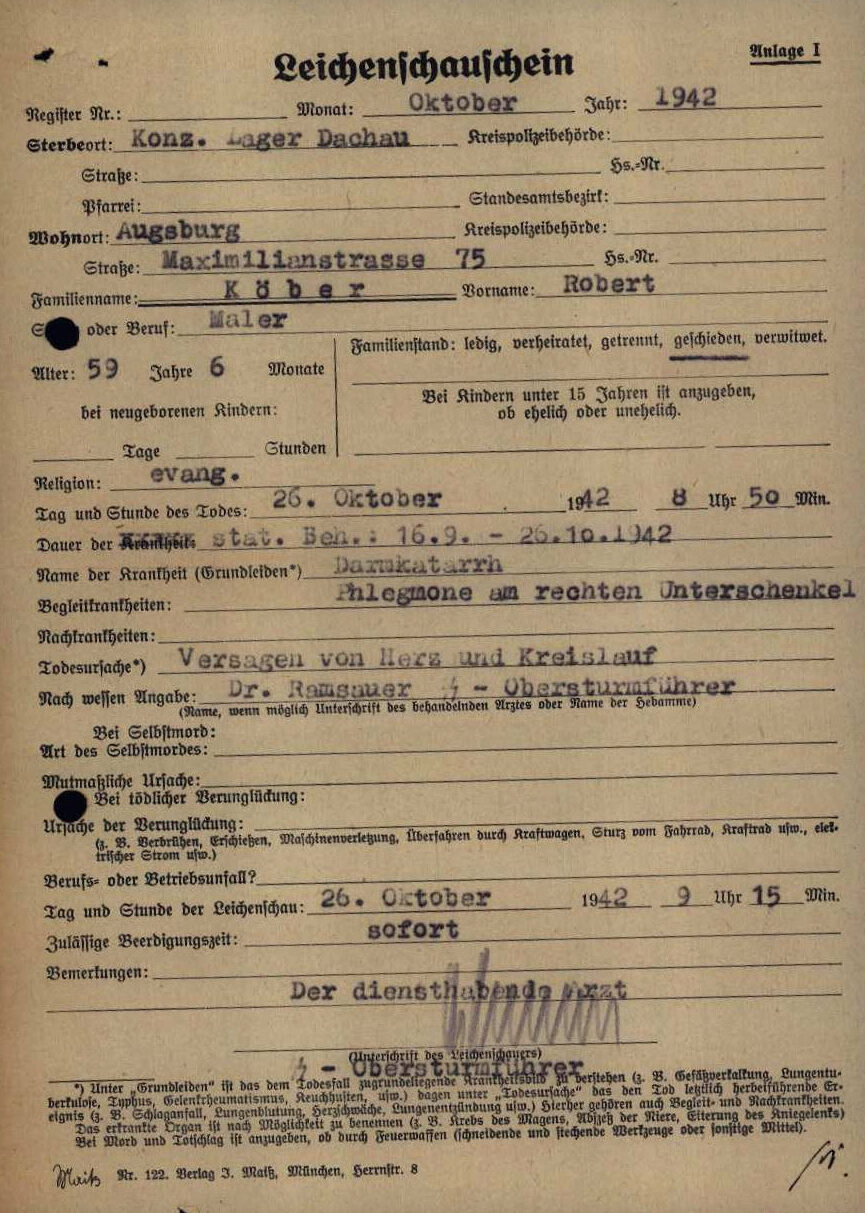 Anlage I
Leichenschauschein
Register Nr.: Monat: Oktober Jahr: 1942
Sterbeort: Konz. Lager Dachau Kreispolizeibehörde:
Straße: Hs.-Nr.
Pfarrei: Standesamtsbezirk:
Wohnort: Augsburg Kreispolizeibehörde:
Straße: Maximilianstrasse 75 Hs.-Nr.
Familienname: Köber Vorname: Robert
oder Beruf: Maler
Familienstand: ledig, verheiratet, getrennt, geschieden, verwitwet.
Alter: 59 Jahre 6 Monate
Bei Kindern unter 15 Jahren ist anzugeben,
ob ehelich oder unehelich.
bei neugeborenen Kindern:
Tage Stunden
Religion: evang.
Tag und Stunde des Todes: 26. Oktober 1942 8 Uhr 50 Min.
Dauer der Krankheit: stat. Beh.: 16.9. - 26.10.1942
Name der Krankheit (Grundleiden*) Darmkatarrh
Begleitkrankheiten: Phlegmone am rechten Unterschenkel
Nachkrankheiten:
Todesursache*) Versagen von Herz und Kreislauf
Nach wessen Angabe: Dr. Ramsauer - Obersturmführer
(Name, wenn möglich Unterschrift des behandelnden Arztes oder Name der Hebamme)
Bei Selbstmord:
Art des Selbstmordes:
Mutmaßliche Ursache:
Bei tödlicher Verunglückung:
Ursache der Verunglückung:
(z. B. Verbrühen, Erschießen, Maschinenverletzung, Überfahren durch Kraftwagen, Sturz vom Fahrrad, Kraftrad usw., elek-
trischer Strom usw.)
Berufs- oder Betriebsunfall?
Tag und Stunde der Leichenschau: 26. Oktober 1942 9 Uhr 15 Min.
Zulässige Beerdigungszeit: sofort
Bemerkungen:
Der diensthabende Arzt
(Unterschrift des Leichenschauers)
- Obersturmführer
*) Unter „Grundleiden" ist das dem Todesfall zugrundeliegende Krankheitsbild zu verstehen (z. B. Gefäßverkalkung, Lungentu-
berkulose, Typhus, Gelenkrheumatismus, Keuchhusten, usw.) dagen unter „Todesursache" das den Tod letztlich herbeiführende Er-
eignis (z. B. Schlaganfall, Lungenblutung, Herzschwäche, Lungenentzündung usw.) Hierher gehören auch Begleit- und Nachkrankheiten.
Das erkrankte Organ ist nach Möglichkeit zu benennen (z. B. Krebs des Magens, Abszeß der Niere, Eiterung des Kniegelenks)
Bei Mord und Totschlag ist anzugeben, ob durch Feuerwaffen (schneidende und stechende Werkzeuge oder sonstige Mittel).
Maiß Nr. 122. Verlag J. Maiß, München, Herrnstr. 8